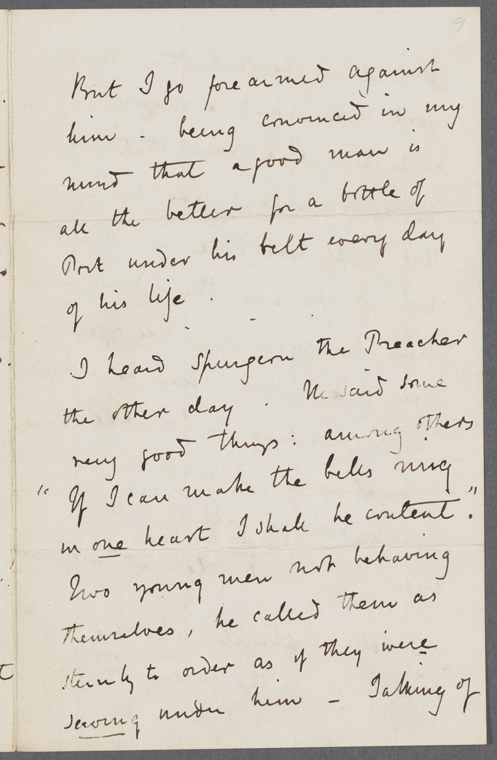 9
But I go forearmed against
him - being convinced in my
mind that a good man is
all the better for a bottle of
Port under his belt every day
of his life.
I heard Spurgeon the Preacher
the other day. He said some
very good things: among others
"If I can make the bells ring
in one heart I shall be content."
Two young men not behaving
themselves, he called them as
sternly to order as if they were
serving under him - Talking of